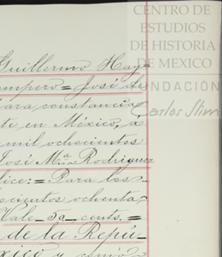 CENTRO DE
ESTUDIOS
DE HISTORIA
DE MEXICO
FUNDACIÓN
Carlos Slim
Guillermo Hay-
ampero = José de
para constancia
te en México, a
mil ochocientos
José Ma. Rodriguez
dice: = Para los
cientos ochenta
Vale 50 cents. =
de la Repú-
xico y